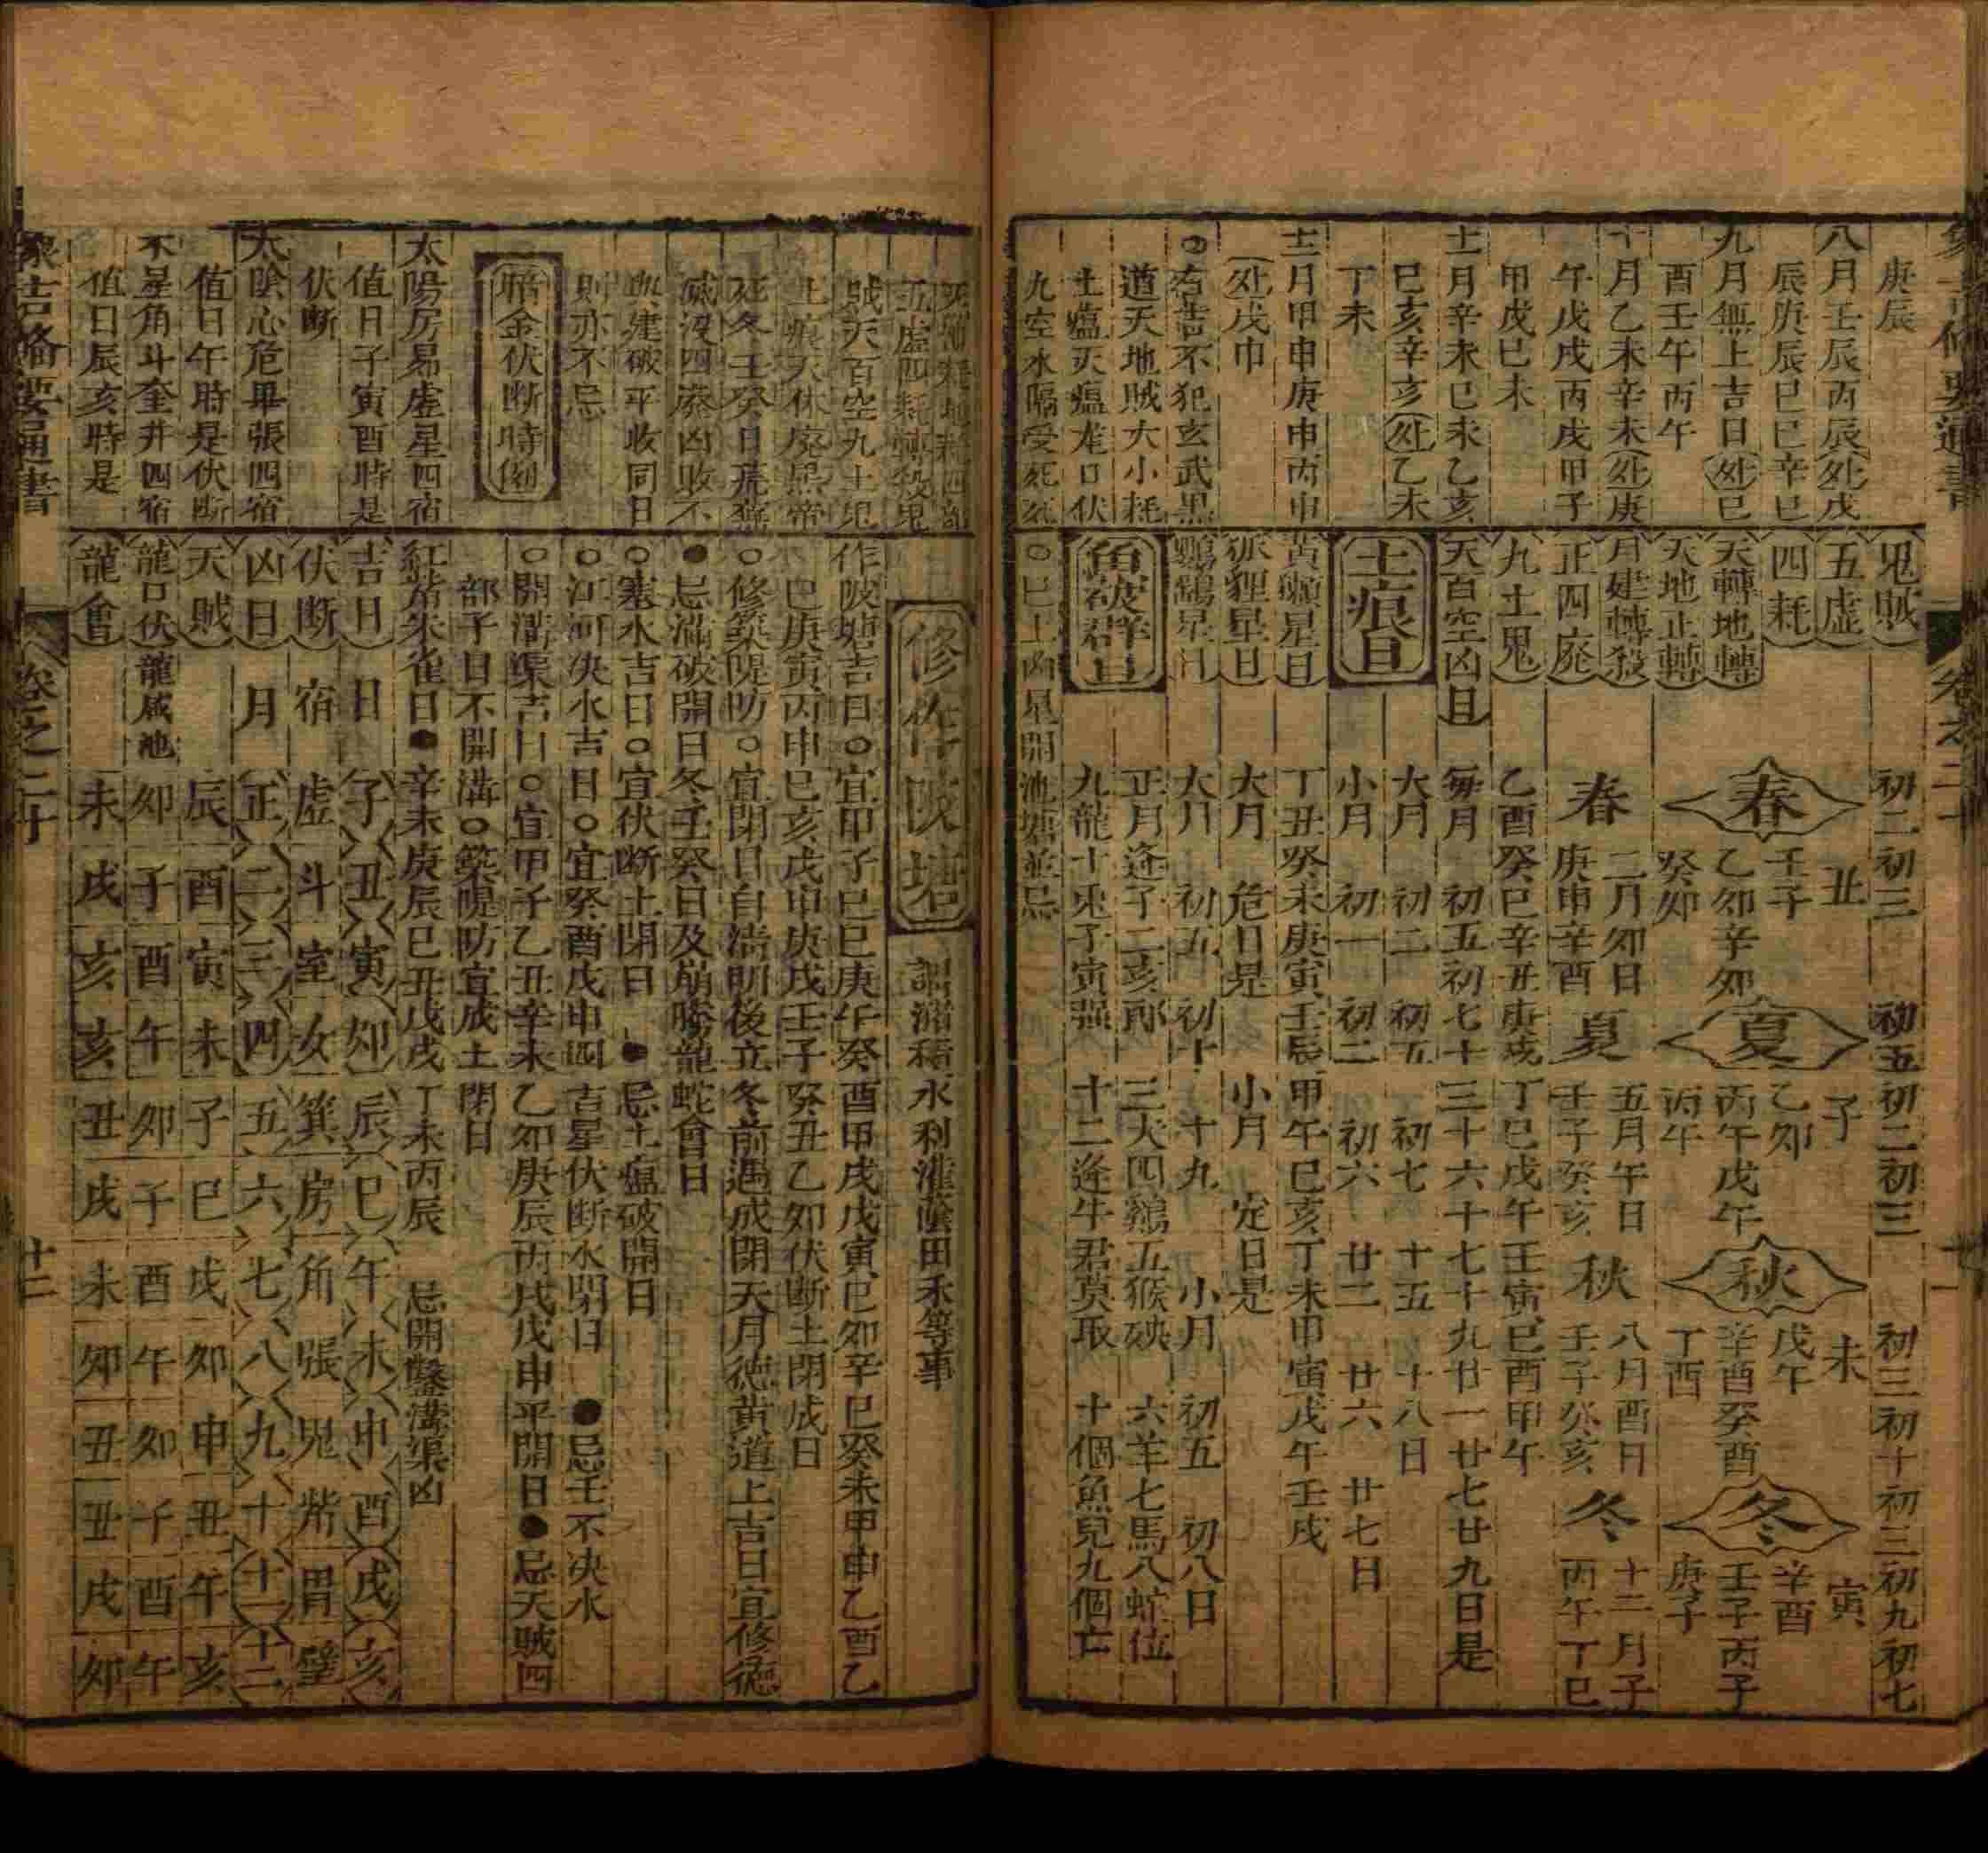 庚辰
八月壬辰丙辰戊
辰庚辰巳巳辛巳
九月無上吉日巳
酉壬午丙午
十月乙未辛未庚
午戊戌丙戌甲子
甲戌巳未
十一月辛未巳未乙亥
巳亥辛亥乙未
丁未
十二月甲申庚申丙申
戊巾
右吉不犯玄武黑
道天地賊大小耗
土瘟天瘟龍口伏
九空水隔受死
鬼賊 初二初三 初五初二初三 初三初十初三初九初七
五虛 丑 子 未 寅
四耗 壬子 乙卯 戊午 辛酉
天轉地轉 春 乙卯辛卯 夏 丙午戊午 秋 辛酉癸酉 冬 壬子丙子
天地正轉 癸卯 丙午 丁酉 庚子
月建轉殺 二月卯日 五月午日 八月酉日 十二月子
正四廢 春 庚申辛酉 夏 壬子癸亥 秋 壬子癸亥 冬 丙午丁巳
九土鬼 乙酉癸巳辛丑庚戌 丁巳戊午壬寅巳酉甲午
天百空凶日 每月 初五初七十三十六十七十九廿一廿七廿九日是
大月 初二 初五 初七 十五 十八日
土痕日 小月 初一 初二 初六 廿二 廿六 廿七日
黃癩星日 丁丑癸未庚寅壬辰甲午巳亥丁未甲寅戊午壬戌
狐狸星日 大月 危日是 小月 定日是
鸚鶴星日 大月 初五 初十 十九 小月 初五 初八日
正月逢子二亥郎 三犬四雞五猴殃 六羊七馬八蛇位
魚破群日 九龍十兎子寅強 十二逢牛君莫取 十個魚兒九個亡
○巳上凶星開池塘並忌
五虛四耗轉殺鬼
賊天百空九土鬼
土痕天休廢黑帝
死冬壬癸日荒蕪
滅沒四廢凶敗不
與建破平收同日
則亦不忌
暗金伏断時例
太陽房昴虛星四宿
值日子寅酉時是
伏断
太陰心危畢張四宿
值日午時是伏断
木星角斗奎井四宿
值日辰亥時是
修作陂塘 謂瀦積水利灌蔭田禾等事
作陂塘吉日○宜甲子巳巳庚午癸酉甲戌戊寅巳卯辛巳癸未甲申乙酉乙
巳庚寅丙申巳亥戊申庚戌壬子癸丑乙卯伏断土閉成日
○修築隄防○宜閉日自清明後立冬前遇成閉天月德黃道上吉日宜修德
●忌滿破開日冬壬癸日及崩騰龍蛇會日
○塞水吉日○宜伏断土閉日 ●忌土瘟破開日
○江河决水吉日○宜癸酉戊申四吉星伏断水閉日 ●忌壬不决水
○開溝渠吉日○宜甲子乙丑辛未乙卯庚辰丙戌戊申平開日●忌天賊四
部子日不開溝○築隄防宜成土閉日
紅觜朱雀日●辛未庚辰巳丑戊戌丁未丙辰 忌開鑿溝渠凶
吉日 日 子丑寅卯辰巳午未申酉戌亥
伏断 宿 虛斗室女箕房角張鬼觜胃壁
凶日 月 正二三四五六七八九十十一十二
天賊 辰酉寅未子巳戌卯申丑午亥
龍口伏龍咸池 卯子酉午卯子酉午卯子酉午
龍會 未戌亥亥丑戌未卯丑丑戌卯
象吉備要通書 卷之二十 廿二